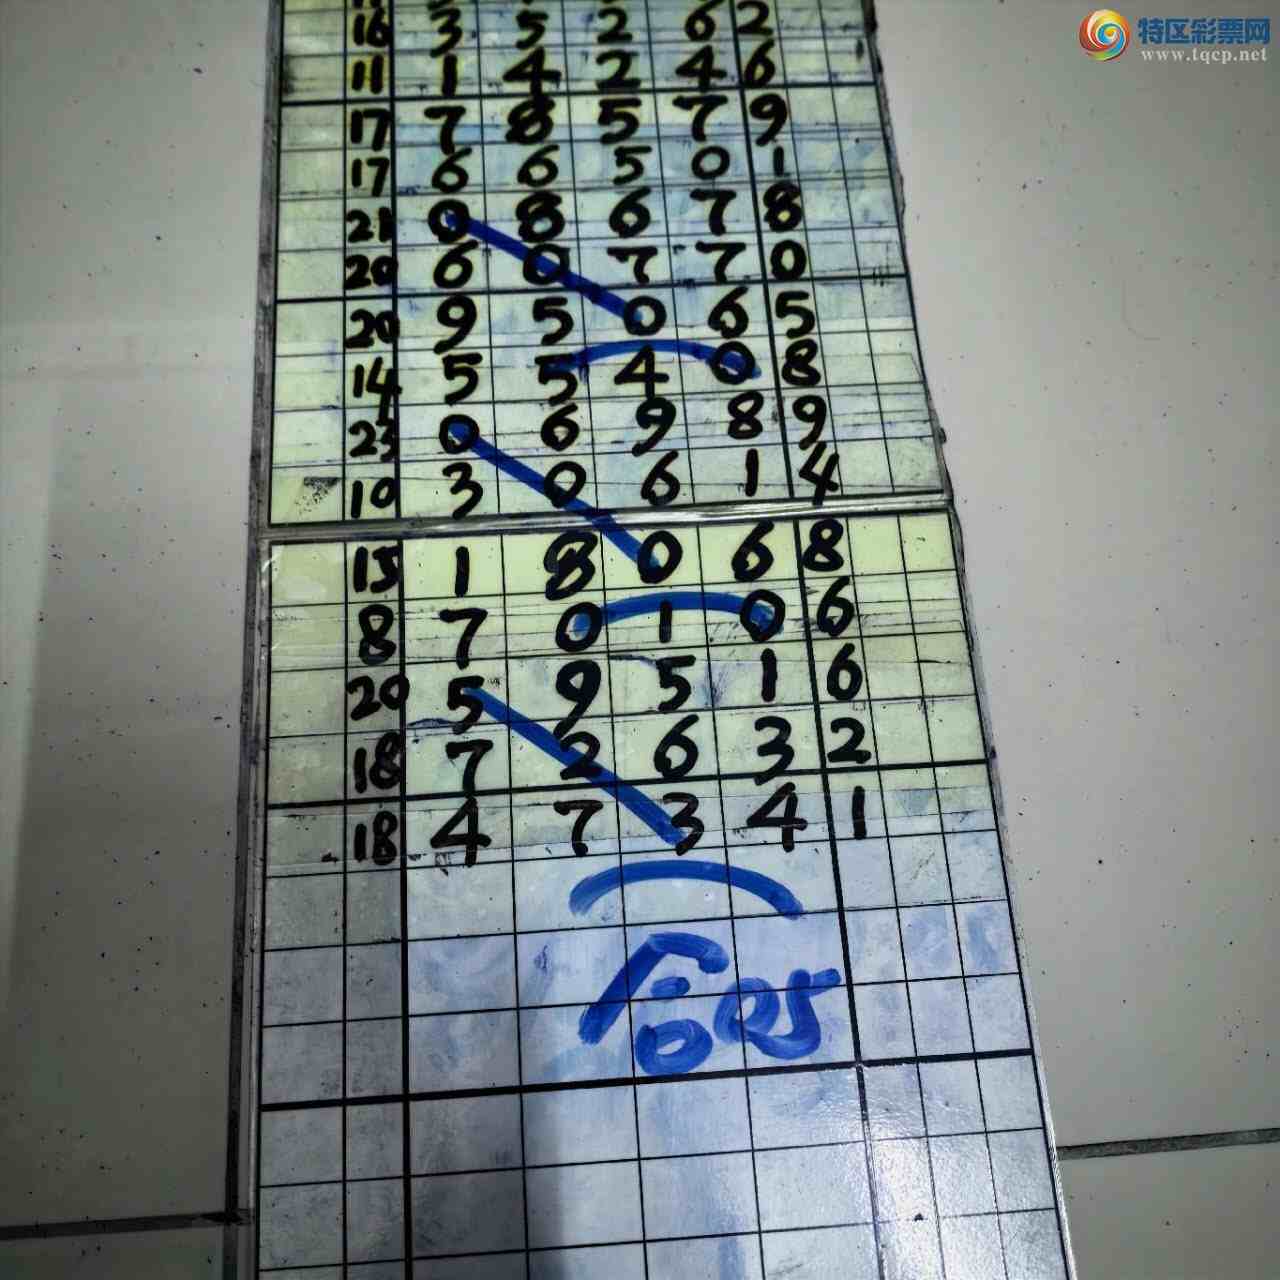 特区彩票网
www.tqcp.net
16 3 5 2 6 2
11 1 4 2 4 6
17 7 8 5 7 9
17 6 6 5 0 1
21 0 8 6 7 8
20 6 0 7 7 0
20 9 5 0 6 5
14 5 5 4 0 8
23 0 6 9 8 9
10 3 0 6 1 4
15 1 8 0 6 8
8 7 0 1 0 6
20 5 9 5 1 6
18 7 2 6 3 2
18 4 7 3 4 1